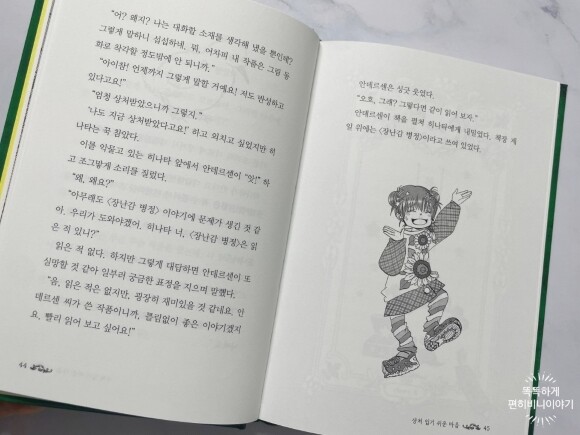 "어? 왜지? 나는 대화할 소재를 생각해 냈을 뿐인데?
그렇게 말하니 섭섭하네. 뭐, 어차피 내 작품은 그림 동
화로 착각할 정도밖에 안 되니까."
"아이참! 언제까지 그렇게 말할 거예요! 저도 반성하고
있다고요!"
"엄청 상처받았으니까 그렇지."
'나도 지금 상처받았다고요!' 하고 외치고 싶었지만 히
나타는 꾹 참았다.
이를 악물고 있는 히나타 앞에서 안데르센이 "앗!" 하
고 조그맣게 소리를 질렀다.
"왜, 왜요?"
"아무래도 <장난감 병정> 이야기에 문제가 생긴 것 같
아. 우리가 도와야겠어. 히나타 너, <장난감 병정>은 읽
은 적 있니?"
읽은 적 없다. 하지만 그렇게 대답하면 안데르센이 또
실망할 것 같아 일부러 궁금한 표정을 지으며 말했다.
"음, 읽은 적은 없지만, 굉장히 재미있을 것 같네요. 안
데르센 씨가 쓴 작품이니까, 틀림없이 좋은 이야기겠지
요. 빨리 읽어 보고 싶어요!"
44
안데르센은 싱긋 웃었다.
"오호, 그래? 그렇다면 같이 읽어 보자."
안데르센이 책을 펼쳐 히나타에게 내밀었다. 책장 제
일 위에는 <장난감 병정>이라고 쓰여 있었다.
상처 입기 쉬운 마음 45
똑똑하게
편히비니이야기